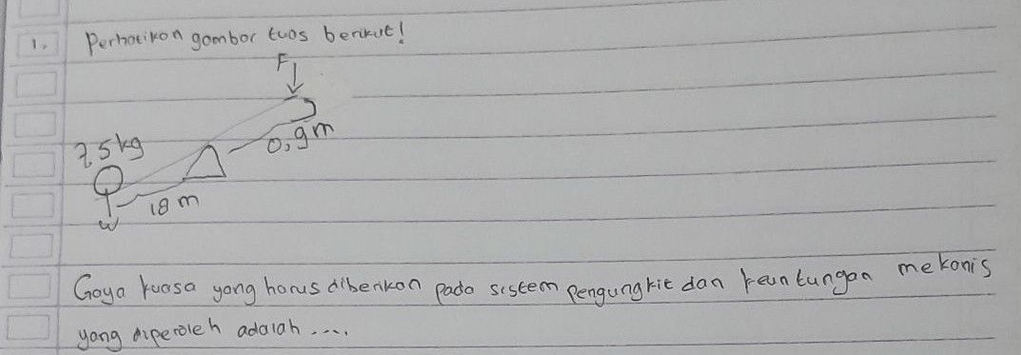 1. Perhatikan gambar tuas berikut!
F
75kg
0,9m
18 m
w
Gaya kuasa yang harus diberikan pada sistem pengungkit dan keuntungan mekanis
yang diperoleh adalah ....